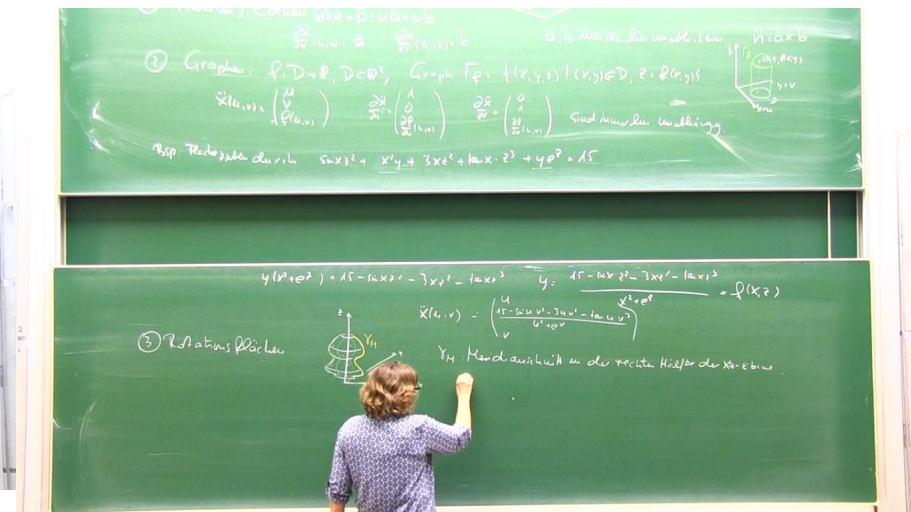 x⃗(u,v) = p⃗ + u a⃗ + v b⃗
∂x⃗/∂u (u,v) = a⃗ ∂x⃗/∂v (u,v) = b⃗ a⃗, b⃗ n⃗ = a⃗ × b⃗
② Graphen: f: D → ℝ, D ⊂ ℝ², Graph Γf = {(x,y,z) | (x,y) ∈ D, z = f(x,y)}
x⃗(u,v) = (u, v, f(u,v)) ∂x⃗/∂u = (1, 0, ∂f/∂u (u,v)) ∂x⃗/∂v = (0, 1, ∂f/∂v (u,v)) sind immer lin. unabhängig.
Bsp. durch sin x z² + x²y + 3xz² + tan x · z³ + y e^z = 15
y(x²+e^z) = 15 - sin x z² - 3xz² - tan x z³ y = (15 - sin x z² - 3xz² - tan x z³)/(x²+e^z) = f(x,z)
x⃗(u,v) = (u, (15 - sin u v² - 3uv² - tan u v³)/(u²+e^v), v)
③ Rotationsflächen
z
γM
γM Meridianschnitt in der rechten Hälfte der xz-Ebene.